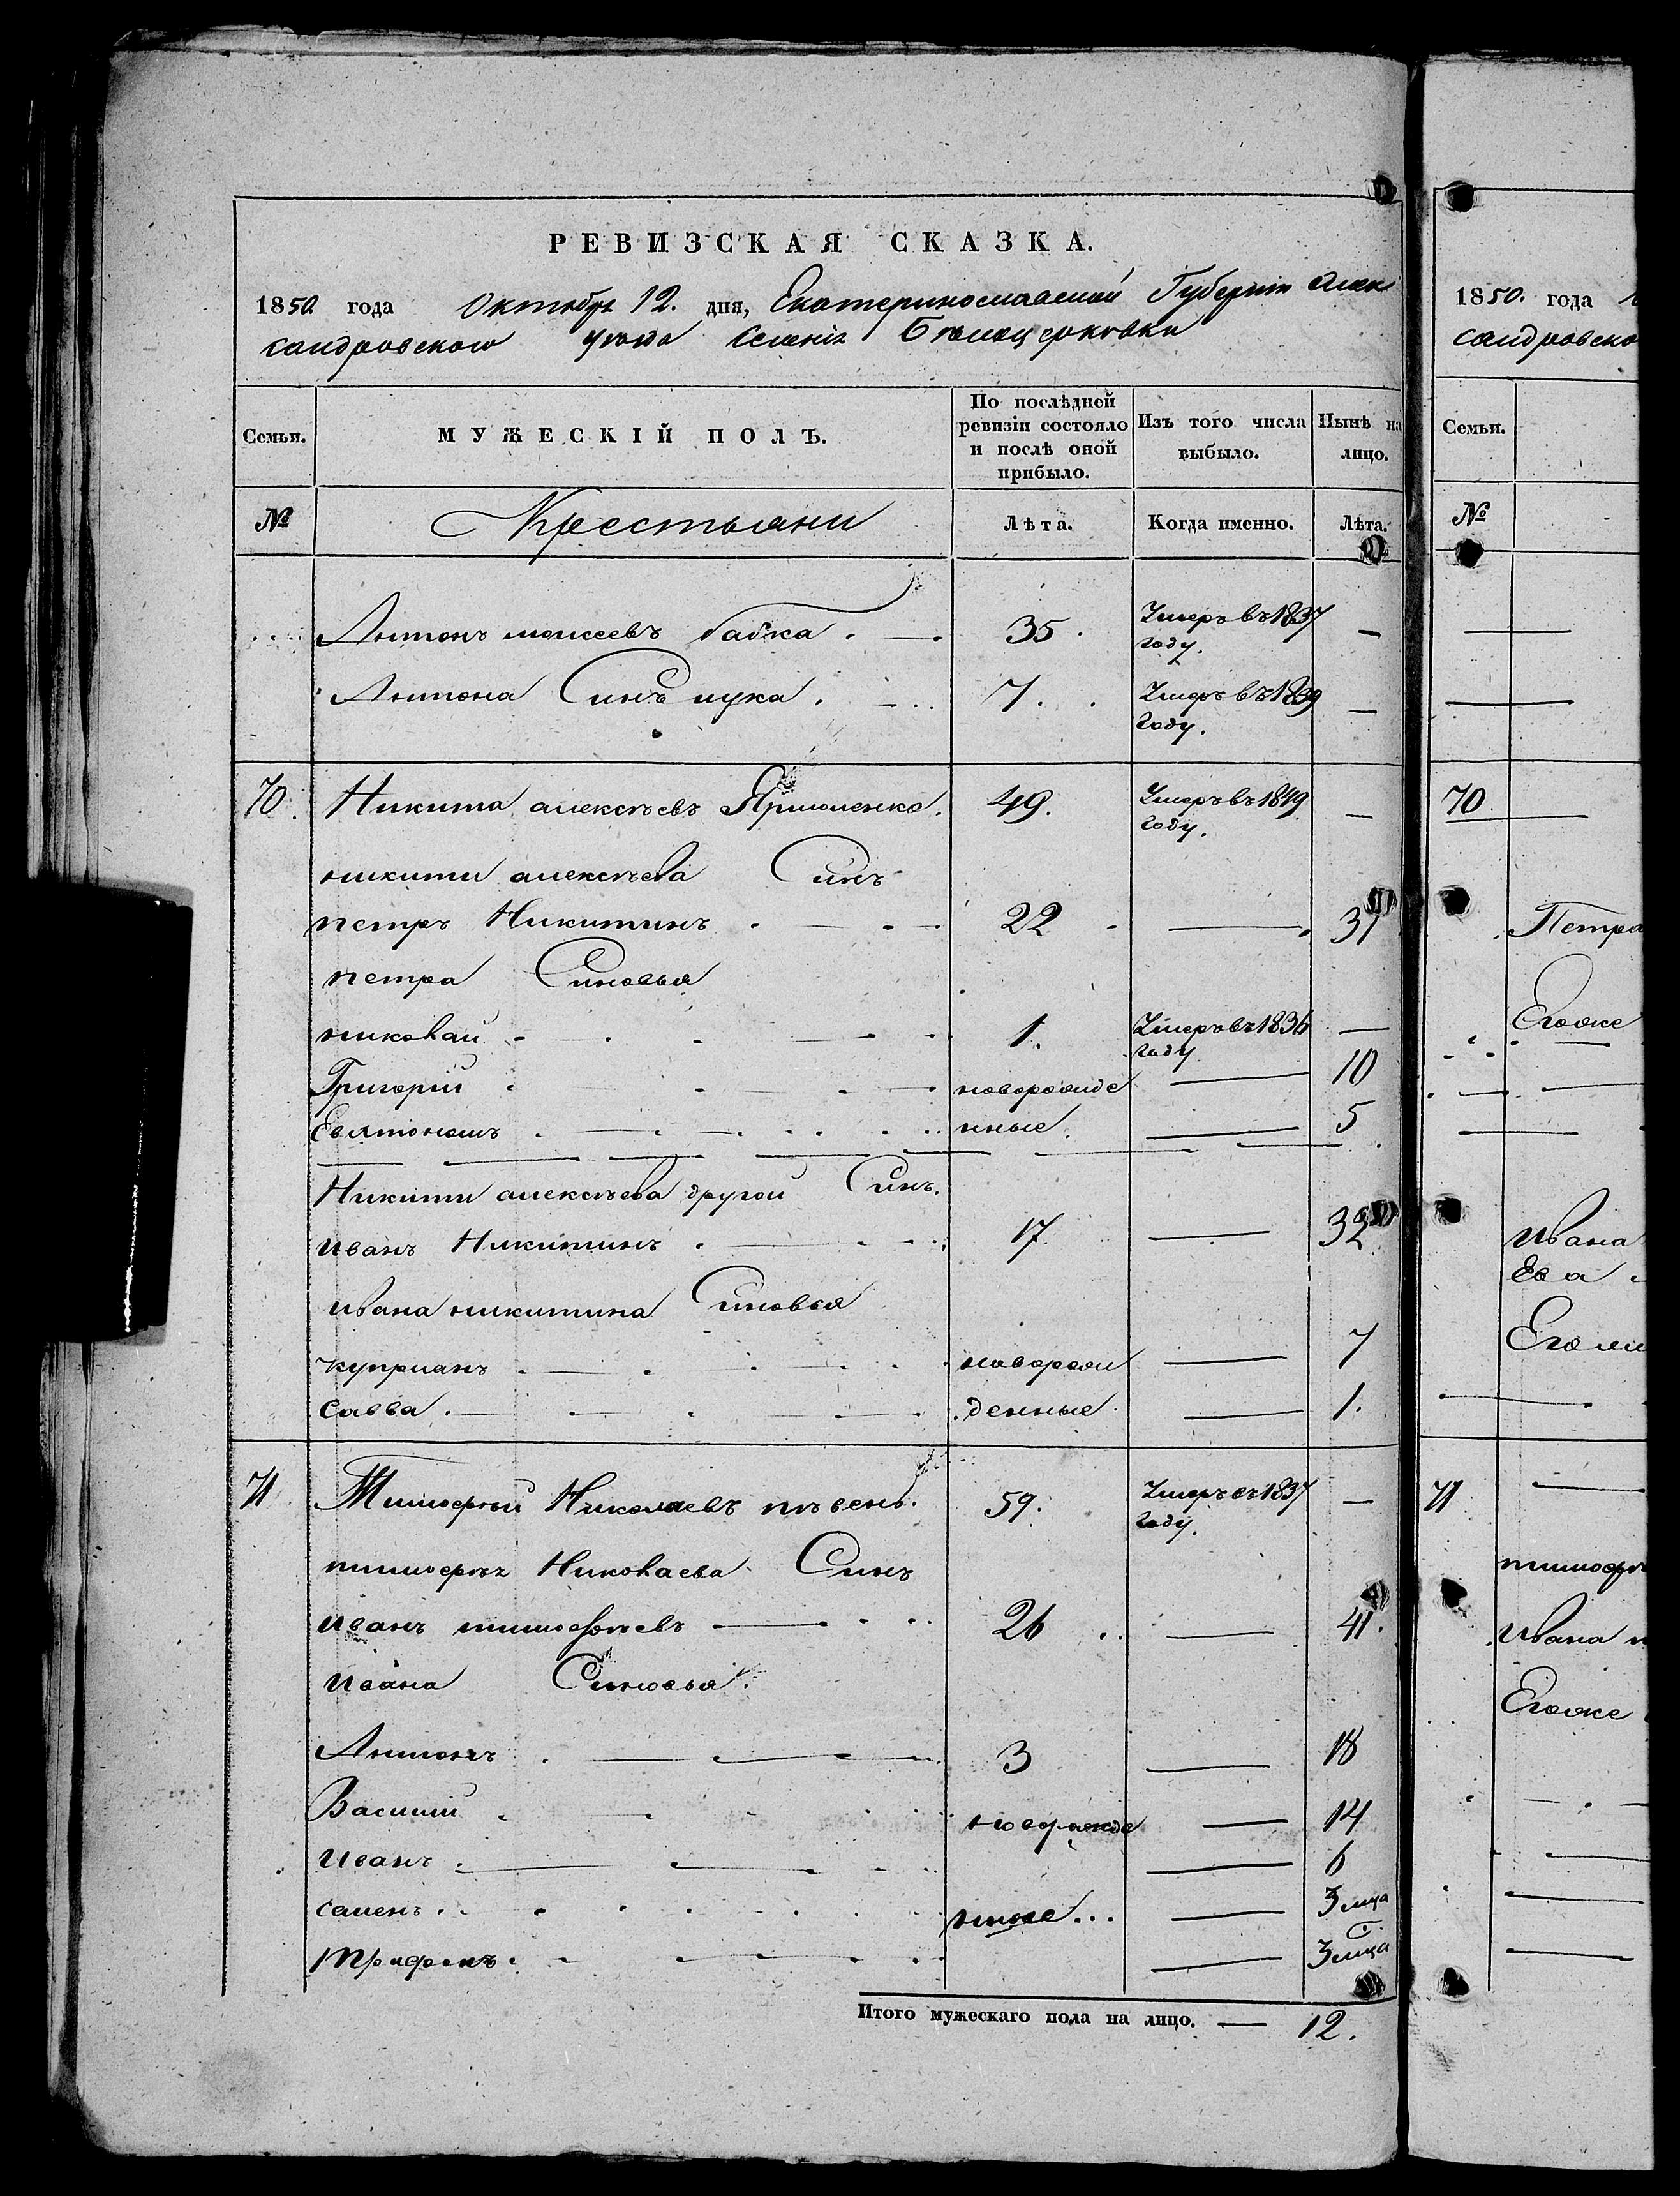 РЕВИЗСКАЯ СКАЗКА.
1850 года Октября 12. дня, Екатеринославской Губернии Алек
сандровского уезда Селения Белоцерковки
Семьи. МУЖЕСКІЙ ПОЛЪ. По послѣдней ревизіи состояло и послѣ оной прибыло. Изъ того числа выбыло. Нынѣ на лицо.
№ Крестьяни Лѣта. Когда именно. Лѣта.
Антонъ моисеевъ бабка. 35. Умеръ въ 1837 году. —
Антона Синъ лука. 7. Умеръ въ 1839 году. —
70. Никита алексѣевъ Ярмоленко. 49. Умеръ въ 1849 году. —
никити алексѣева Синъ
петръ Никитинъ 22 — 37
петра Синовья
николай 1. Умеръ въ 1836 году —
Григорій новорожде — 10
Евлтономъ нные. — 5
Никити алексѣева другой Синъ.
иванъ Никитинъ 17 — 32
ивана никитина Синовья
куприанъ новорож — 7
савва. денные — 1.
71. Тимофѣй Николаевъ пѣвень. 59. Умеръ въ 1837 году. —
тимофѣя Николаева Синъ
иванъ тимофѣевъ 26 — 41.
ивана Синовья.
Антонъ 3 — 18
Василий новорожде — 14
иванъ — 6
семенъ нные... — 3 мца
трифонъ — 3 мца
Итого мужескаго пола на лицо. — 12.
1850. года
сандровско
Семьи.
№
70
Петра
Егоже
ивана
Ева
Его
71
тимофѣ
ивана
Егоже